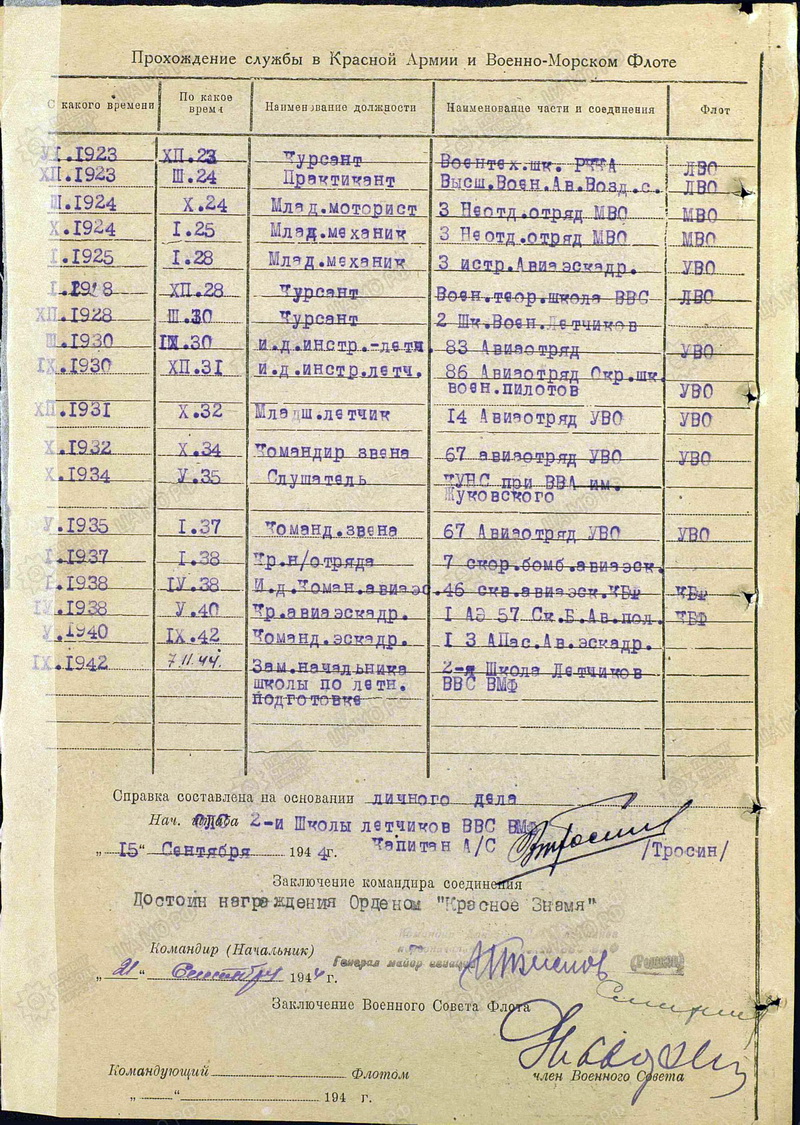 Прохождение службы в Красной Армии и Военно-Морском Флоте
С какого времени По какое время Наименование должности Наименование части и соединения Флот
УІ.1923 ХП.23 Курсант Воентех.шк. РККА ЛВО
ХП.1923 Ш.24 Практикант Высш.Воен.Ав.Возд.с. ЛВО
Ш.1924 Х.24 Млад.моторист 3 Неотд.отряд МВО МВО
Х.1924 І.25 Млад.механик 3 Неотд.отряд МВО МВО
І.1925 І.28 Млад.механик 3 истр.Авиаэскадр. УВО
І.1928 ХП.28 Курсант Воен.теор.школа ВВС ЛВО
ХП.1928 Ш.30 Курсант 2 Шк.Воен.Летчиков
Ш.1930 ІХ.30 и.д.инстр.-летч. 83 Авиаотряд УВО
ІХ.1930 ХП.31 и.д.инстр.летч. 86 Авиаотряд Окр.шк.
воен.пилотов УВО
ХП.1931 Х.32 Младш.летчик 14 Авиаотряд УВО УВО
Х.1932 Х.34 Командир звена 67 авиаотряд УВО УВО
Х.1934 У.35 Слушатель КУНС при ВВА им.
Жуковского
У.1935 І.37 Команд.звена 67 Авиаотряд УВО УВО
І.1937 І.38 Кр.н/отряда 7 скор.бомб.авиаэск.
І.1938 ІУ.38 И.д.Коман.авиаэс. 46 скв.авиаэск.КБФ КБФ
ІУ.1938 У.40 Кр.авиаэскадр. І АЭ 57 Ск.Б.Ав.пол. КБФ
У.1940 ІХ.42 Команд.эскадр. І З АПас.Ав.эскадр.
ІХ.1942 7.11.44. Зам.начальника 2-я Школа Летчиков
школы по летн. ВВС ВМФ
подготовке
Справка составлена на основании личного дела
Нач. штаба 2-й Школы летчиков ВВС ВМФ
„15“ Сентября 1944г. Капитан А/С /Тросин/
Заключение командира соединения
Достоин награждения Орденом "Красное Знамя"
Командир (Начальник)
Генерал майор авиации
„21“ Сентября 1944г.
Заключение Военного Совета Флота
Командующий Флотом член Военного Совета
„ “ 194 г.